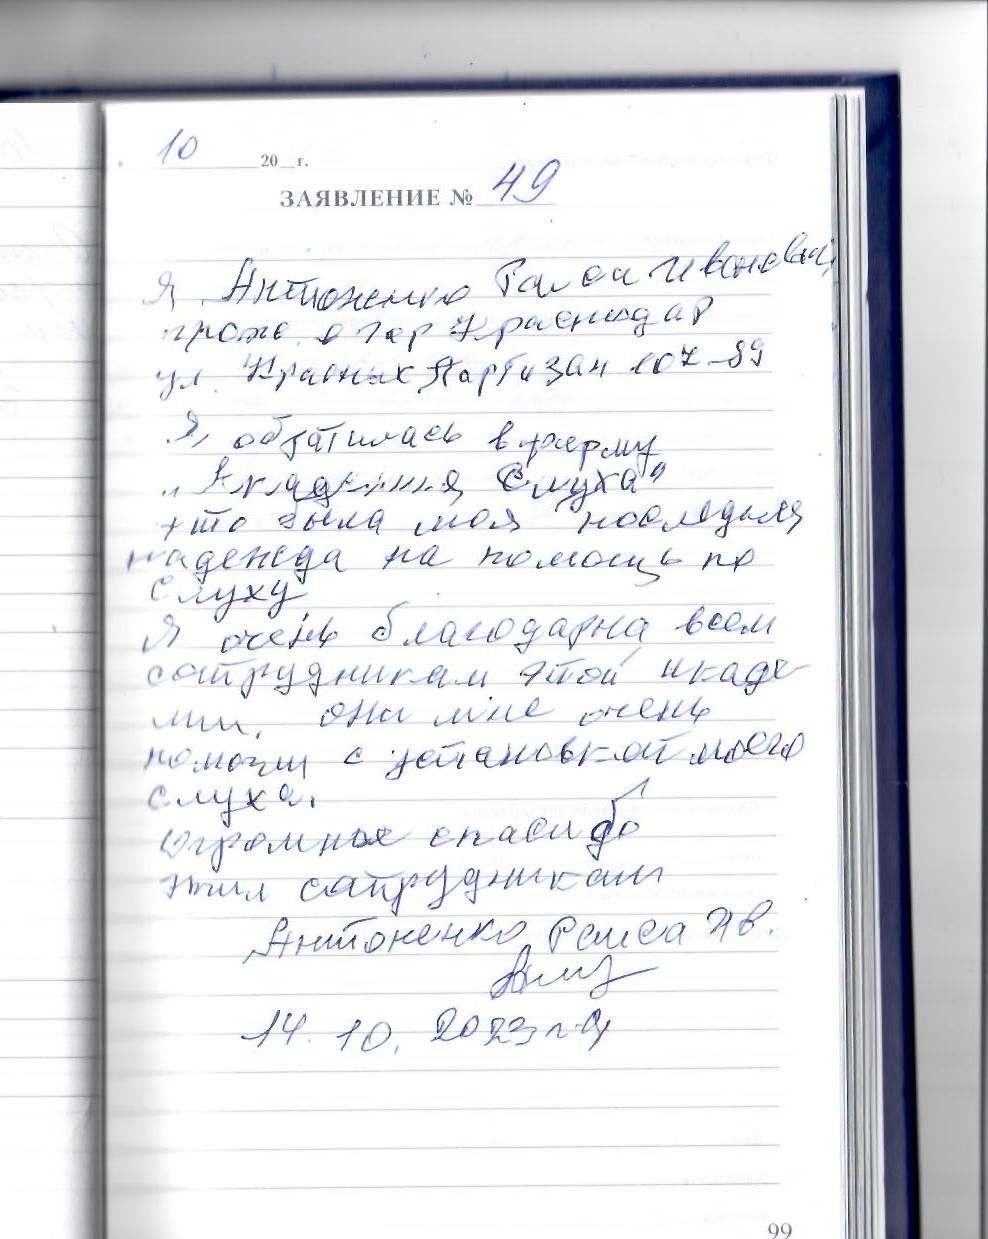 10 20__г.
ЗАЯВЛЕНИЕ № 49
Я, Антоненко Раиса Ивановна,
прожв. в гор Краснодар
ул. Красных Партизан 107-89
Я, обратилась в фирму
„Академия Слуха"
это была моя последняя
надежда на помощь по
слуху
Я очень благодарна всем
сотрудникам этой икаде-
мии, они мне очень
помогли с установкой моего
слуха.
Огромное спасибо
этим сотрудникам
Антоненко Раиса Ив.
14. 10. 2023 г.
99